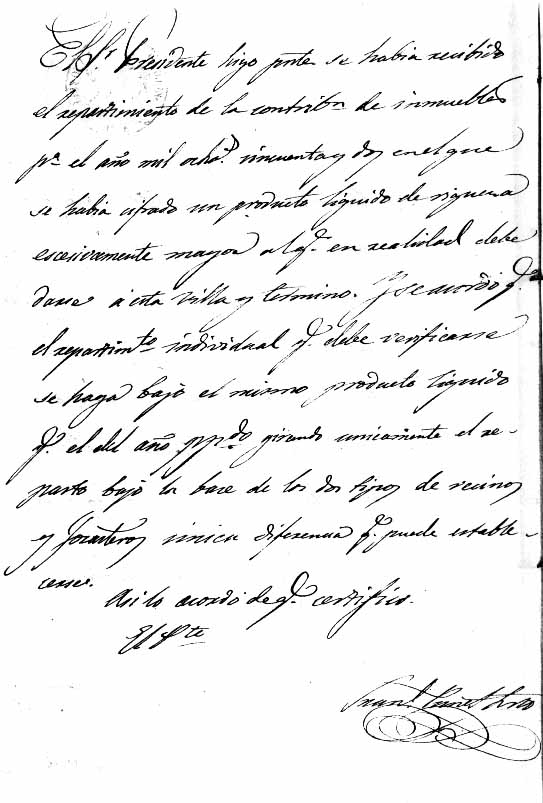 El Sr. Presidente hizo pnte se habia recibido
el repartimiento de la contribn. de inmuebles
pa. el año mil ochos. cincuenta y dos en el que
se habia cifrado un producto liquido de riqueza
escesivamente mayor al q. en realidad debe
darse á esta Villa y termino. Y se acordó q.
el repartimto. individual q. debe verificarse
se haga bajo el mismo producto liquido
q. el del año ppdo. girando unicamente el re-
parto bajo la base de los dos tipos de vecinos
y forasteros unica diferencia q. puede estable-
cerse.
Asi lo acordó de q. certifico.
El Pte